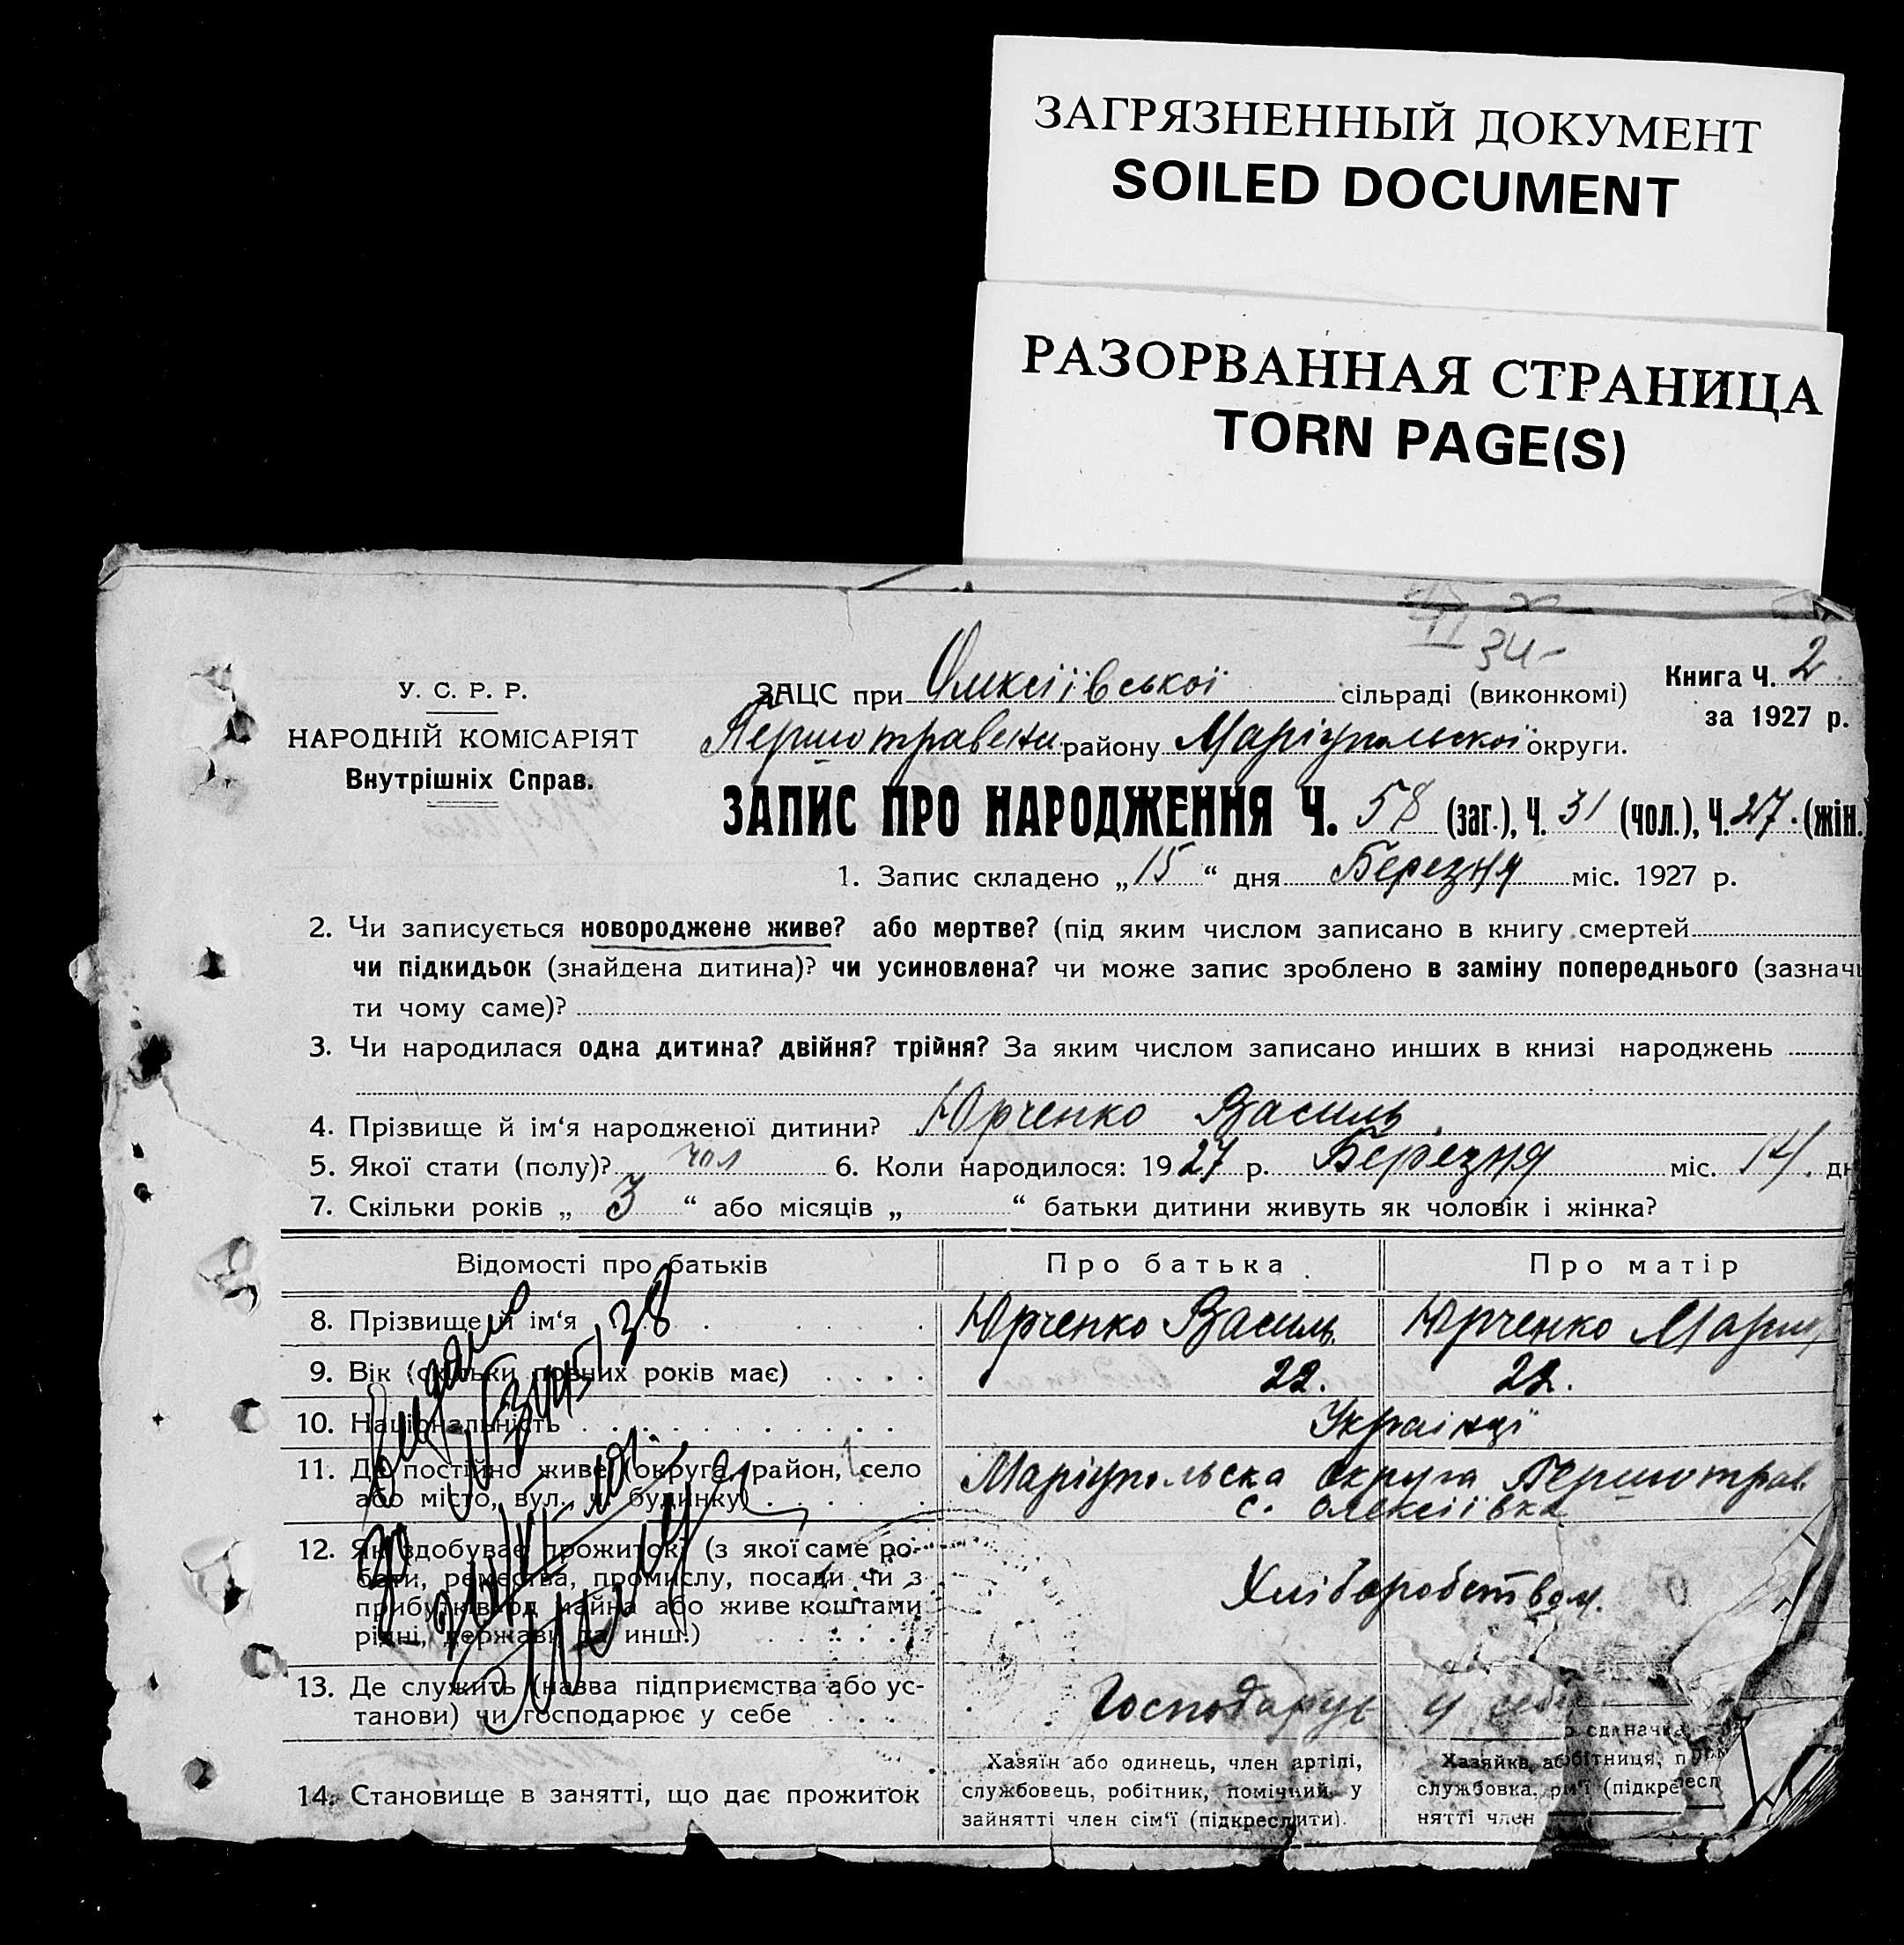 ЗАГРЯЗНЕННЫЙ ДОКУМЕНТ
SOILED DOCUMENT
РАЗОРВАННАЯ СТРАНИЦА
TORN PAGE(S)
34-
Книга Ч. 2
за 1927 р.
У. С. Р. Р.
НАРОДНІЙ КОМІСАРІЯТ
Внутрішніх Справ.
ЗАЦС при Олексіївської сільраді (виконкомі)
Першотравени району Маріупольської округи.
ЗАПИС ПРО НАРОДЖЕННЯ Ч. 58 (заг.), Ч. 31 (чол.), Ч. 27. (жін.
1. Запис складено „ 15 “ дня Березня міс. 1927 р.
2. Чи записується новороджене живе? або мертве? (під яким числом записано в книгу смертей
чи підкидьок (знайдена дитина)? чи усиновлена? чи може запис зроблено в заміну попереднього (зазначи
ти чому саме)?
3. Чи народилася одна дитина? двійня? трійня? За яким числом записано инших в книзі народжень
4. Прізвище й ім‘я народженої дитини? Юрченко Василь
5. Якої стати (полу)? чол 6. Коли народилося: 1927 р. Березня міс. 14. дн
7. Скільки років „ 3 “ або місяців „ “ батьки дитини живуть як чоловік і жінка?
Відомості про батьків Про батька Про матір
8. Прізвище й ім‘я Юрченко Василь Юрченко Мария
9. Вік (скільки повних років має) 22. 22.
10. Національність Українці
11. Де постійно живе (округа, район, село Маріупольска округа Першотрав.
або місто, вул., ч. будинку) с. Олексіївка
12. Як здобуває прожиток (з якої саме ро-
боти, ремества, промислу, посади чи з Хліборобством.
прибутків од майна або живе коштами
рідні, держави та инш.)
13. Де служить (назва підприємства або ус- Господарує у себе
танови) чи господарює у себе
14. Становище в занятті, що дає прожиток
Хазяїн або одинець, член артілі,
службовець, робітник, помічний у
зайнятті член сім‘ї (підкреслити).
Хазяйка, а
службовка,
нятті член